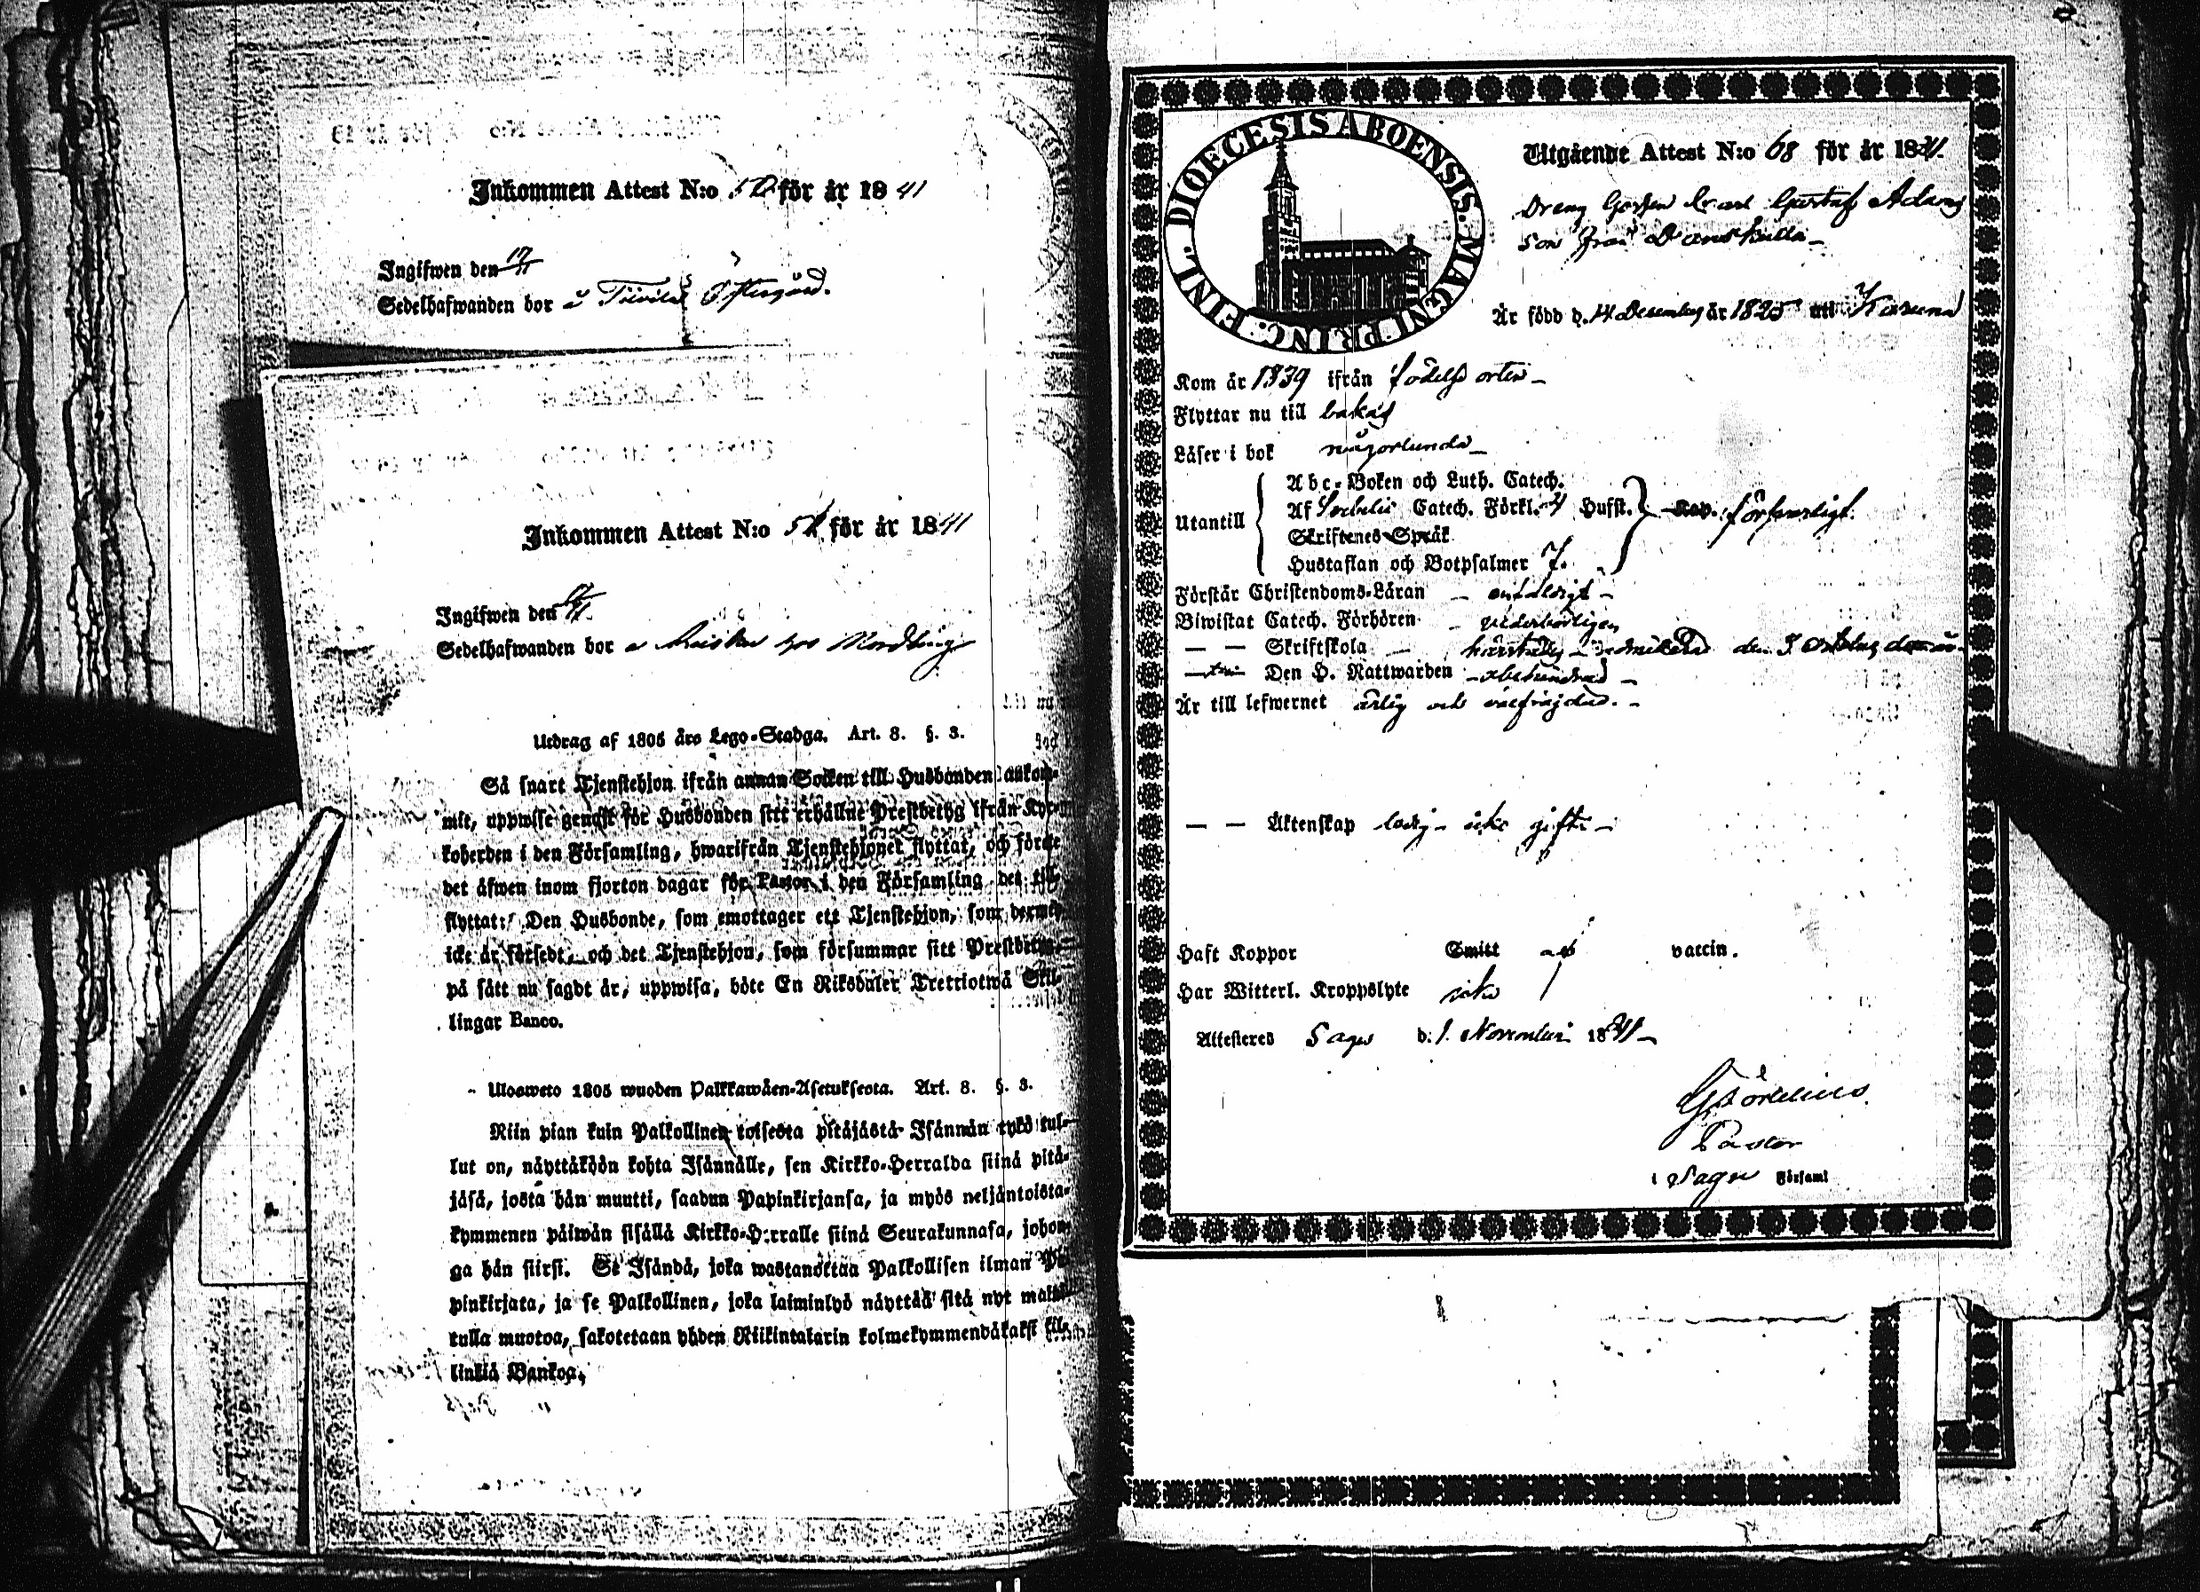 Inkommen Attest N:o 50 för år 1841
Ingifwen den 17/11
Sedelhafwanden bor å Östergård.
Inkommen Attest N:o 51 för år 1841
Ingifwen den
Sedelhafwanden bor
Utdrag af 1805 års Lego-Stadga. Art. 8. §. 3.
Så snart Tjenstehjon ifrån annan Socken till Husbonden ankom-
mit, uppwise genast för Husbonden sitt erhållne Prestbetyg ifrån Kyr-
koherden i den Församling, hwarifrån Tjenstehjonet flyttat, och förete
det åfwen inom fjorton dagar för Pastor i den Församling det till-
flyttat: Den Husbonde, som emottager ett Tjenstehjon, som dermed
icke är försedt, och det Tjenstehjon, som försummar sitt Prestbetyg
på sätt nu sagdt är, uppwisa, böte En Riksdaler Trettiotwå Skil-
lingar Banco.
Ulosweto 1805 wuoden Palkkawäen-Asetuksesta. Art. 8. §. 3.
Niin pian kuin Palkollinen toisesta pitäjästä Isännän tykö tul-
lut on, näyttäköön kohta Isännälle, sen Kirkko-Herralda siinä pitä-
jäsä, josta hän muutti, saadun Papinkirjansa, ja myös neljäntoista-
kymmenen päiwän sisällä Kirkko-Herralle siinä Seurakunnasa, johon-
ga hän siirsi. Se Isändä, joka wastanottaa Palkollisen ilman Pa-
pinkirjata, ja se Palkollinen, joka laiminlyö näyttää sitä nyt mainit-
tulla muotoa, sakotetaan yhden Riikintalarin kolmekymmendäkaksi kil-
linkiä Bankoa.
DIOECESIS ABOENSIS. MAGNI PRINC. FINL.
Utgående Attest N:o 68 för år 1841.
Dreng Gossen Carl Gustaf Adams
son från Danskulla
Är född d. 14 December år 1825 uti Karuna
Kom år 1839 ifrån födelse orten
Flyttar nu till bakas
Läser i bok någorlunda
Utantill
Abc-Boken och Luth. Catech.
Af Sebelii Catech. Förkl. 4 Hufst. Kap. försvarligt.
Skriftenes Språk
Hustaflan och Botpsalmer 7.
Förstår Christendoms-Läran enfaldigt
Biwistat Catech. Förhören vederbörligen
— — Skriftskola härstädes admitterad den 3 October detta år
— Den H. Nattwarden obehindrad
Är till lefwernet ärlig och välfrejdad.
— — Äktenskap ledig icke gift
Haft Koppor Smitt af vaccin.
Har Witterl. Kroppslyte icke
Attesteres Sagu d. 1 November 1841
Pastor
i Sagu Församl